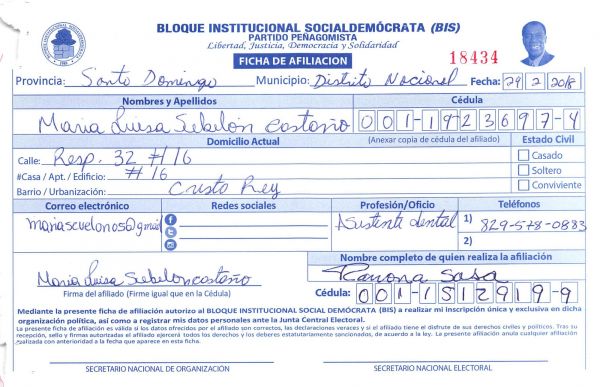 BLOQUE INSTITUCIONAL SOCIALDEMÓCRATA (BIS)
PARTIDO PEÑAGOMISTA
Libertad, Justicia, Democracia y Solidaridad
FICHA DE AFILIACION
18434
Provincia: Santo Domingo Municipio: Distrito Nacional Fecha: 29 2 2018
Nombres y Apellidos Cédula
Maria Luisa Sebelon Castaño 001-1923697-4
Domicilio Actual (Anexar copia de cédula del afiliado) Estado Civil
Calle: Resp. 32 #16 Casado
#Casa / Apt. / Edificio: #16 Soltero
Barrio / Urbanización: Cristo Rey Conviviente
Correo electrónico Redes sociales Profesión/Oficio Teléfonos
@gmail Asistente dental 1) 829-578-0883
2)
Nombre completo de quien realiza la afiliación
Maria Luisa Sebelon castaño Ramona Sosa
Firma del afiliado (Firme igual que en la Cédula) Cédula: 001-1512919-9
Mediante la presente ficha de afiliación autorizo al BLOQUE INSTITUCIONAL SOCIAL DEMÓCRATA (BIS) a realizar mi inscripción única y exclusiva en dicha
organización política, así como a registrar mis datos personales ante la Junta Central Electoral.
La presente ficha de afiliación es válida si los datos ofrecidos por el afiliado son correctos, las declaraciones veraces y si el afiliado tiene el disfrute de sus derechos civiles y políticos. Tras su
recepción, sello y firmas autorizadas el afiliado ejercerá todos los derechos y los deberes estatutariamente sancionados, de acuerdo a la ley. La presente afiliación anula cualquier afiliación
realizada con anterioridad a la fecha que aparece en esta ficha.
SECRETARIO NACIONAL DE ORGANIZACIÓN SECRETARIO NACIONAL ELECTORAL